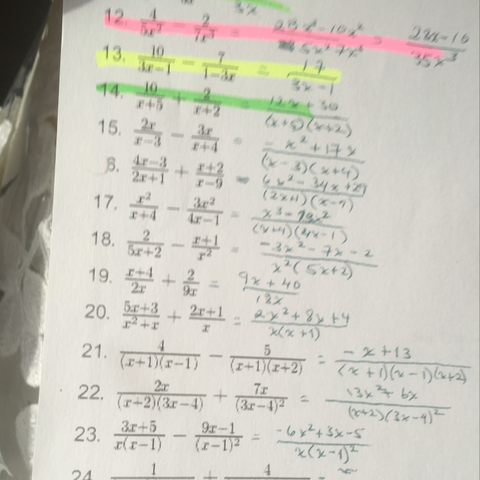 3x
12. 4/5x² − 2/7x³ = 28x³ − 10x²/5x² 7x³ = 28x − 10/35x³
13. 10/3x−1 − 7/1−3x = 17/3x − 1
14. 10/x+5 + 2/x+2 = 12x + 30/(x+5)(x+2)
15. 2x/x−3 − 3x/x+4 = − x² + 17x/(x−3)(x+4)
6. 4x−3/2x+1 + x+2/x−9 = 6x² − 34x + 29/(2x+1)(x−9)
17. x²/x+4 − 3x²/4x−1 = x³ − 13x²/(x+4)(4x−1)
18. 2/5x+2 − x+1/x² = −3x² − 7x − 2/x²(5x+2)
19. x+4/2x + 2/9x = 9x + 40/18x
20. 5x+3/x²+x + 2x+1/x = 2x² + 8x + 4/x(x+1)
21. 4/(x+1)(x−1) − 5/(x+1)(x+2) = − x + 13/(x+1)(x−1)(x+2)
22. 2x/(x+2)(3x−4) + 7x/(3x−4)² = 13x² + 6x/(x+2)(3x−4)²
23. 3x+5/x(x−1) − 9x−1/(x−1)² = −6x² + 3x − 5/x(x−1)²
24. 1 + 4 =